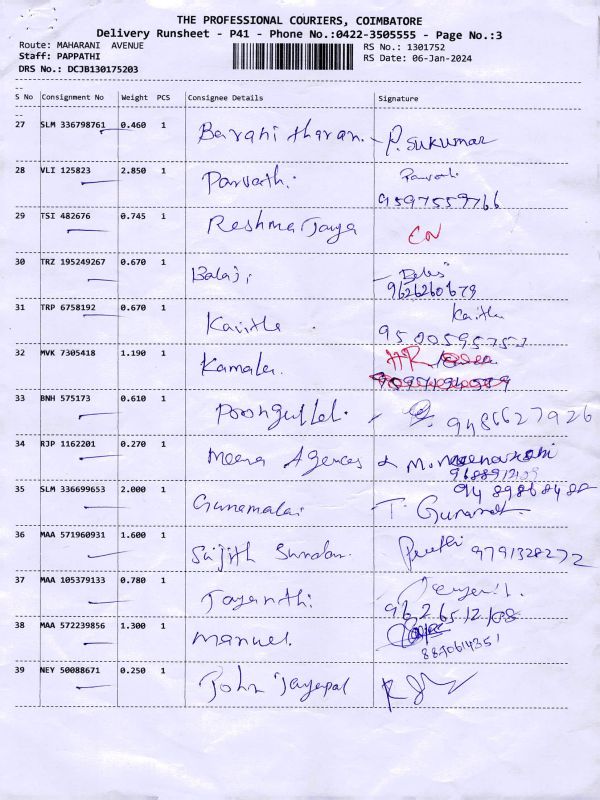 THE PROFESSIONAL COURIERS, COIMBATORE
Delivery Runsheet - P41 - Phone No.:0422-3505555 - Page No.:3
Route: MAHARANI AVENUE RS No.: 1301752
Staff: PAPPATHI RS Date: 06-Jan-2024
DRS No.: DCJB130175203
S No Consignment No Weight PCS Consignee Details Signature
27 SLM 336798761 0.460 1 Barani tharan P. Sukumar
28 VLI 125823 2.850 1 Parvathi.
9597559766
29 TSI 482676 0.745 1 Reshma Jaya
30 TRZ 195249267 0.670 1 Balaji
9626260679
31 TRP 6758192 0.670 1 Kavitha
9500595757
32 MVK 7305418 1.190 1 Kamala.
33 BNH 575173 0.610 1 9486627926
34 RJP 1162201 0.270 1 Meena Agences M. Meenakshi
35 SLM 336699653 2.000 1 Gunamalai T. Gunamal
36 MAA 571960931 1.600 1 Sujith Sundar. Preethi 9791328272
37 MAA 105379133 0.780 1 Jayanthi.
38 MAA 572239856 1.300 1 Manuel.
8870614351
39 NEY 50088671 0.250 1 John Jayapal